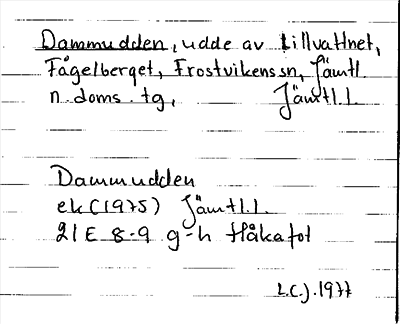 Dammudden, udde av Lillvattnet,
Fågelberget, Frostvikens sn, Jämtl.
n. doms. tg, Jämtl. l.
Dammudden
ek (1975) Jämtl. l.
21E 8-9 g-h Håkafot
L.C.J. 1977